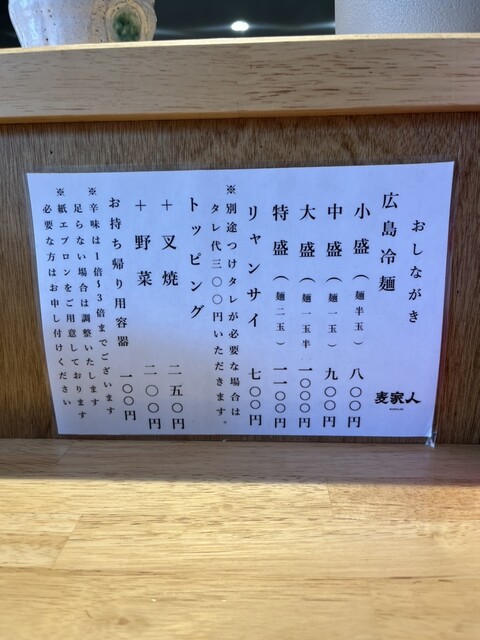 おしながき
広島冷麺
小盛（麺半玉）八〇〇円
中盛（麺一玉）九〇〇円
大盛（麺一玉半）一〇〇〇円
特盛（麺二玉）一一〇〇円
リャンサイ 七〇〇円
※別途つけタレが必要な場合は
タレ代三〇〇円いただきます。
トッピング
＋叉焼 二五〇円
＋野菜 二〇〇円
お持ち帰り用容器 一〇〇円
※辛味は1倍～3倍までございます
足らない場合は調整いたします
※紙エプロンをご用意しております
必要な方はお申し付けください
麦家人